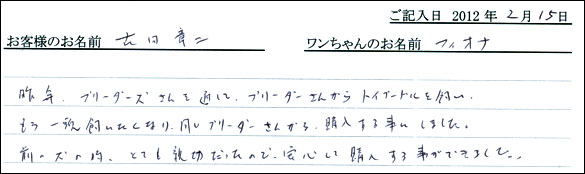 ご記入日 2012 年 2月 15日
お客様のお名前 吉田 章二 ワンちゃんのお名前 フィオナ
昨年、ブリーダーズさんを通して、ブリーダーさんからトイプードルを飼い、
もう一頭飼いたくなり、同じブリーダーさんから、購入する事にしました。
前の犬の時、とても親切だったので、安心して購入する事ができました。